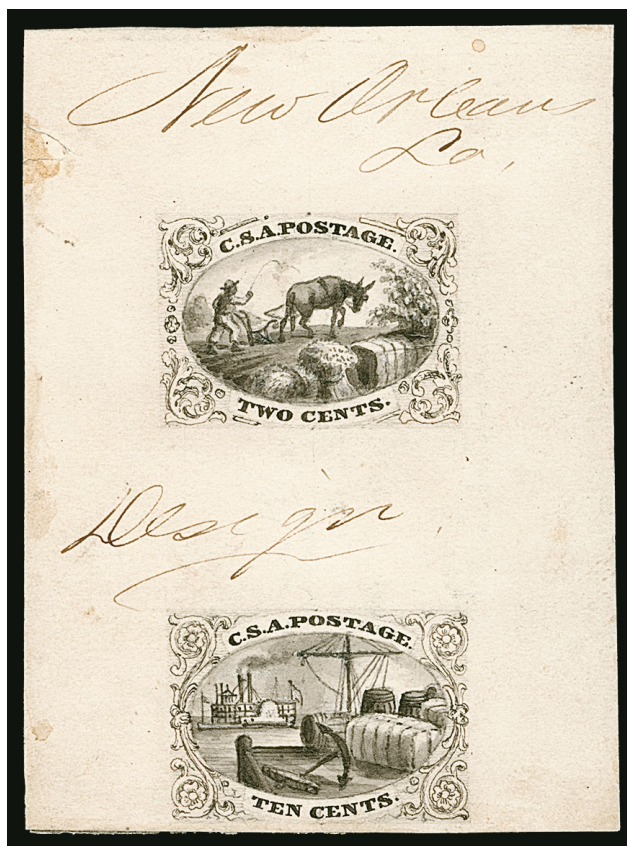 New Orleans
La,
C.S.A.POSTAGE.
TWO CENTS.
Design.
C.S.A.POSTAGE.
TEN CENTS.